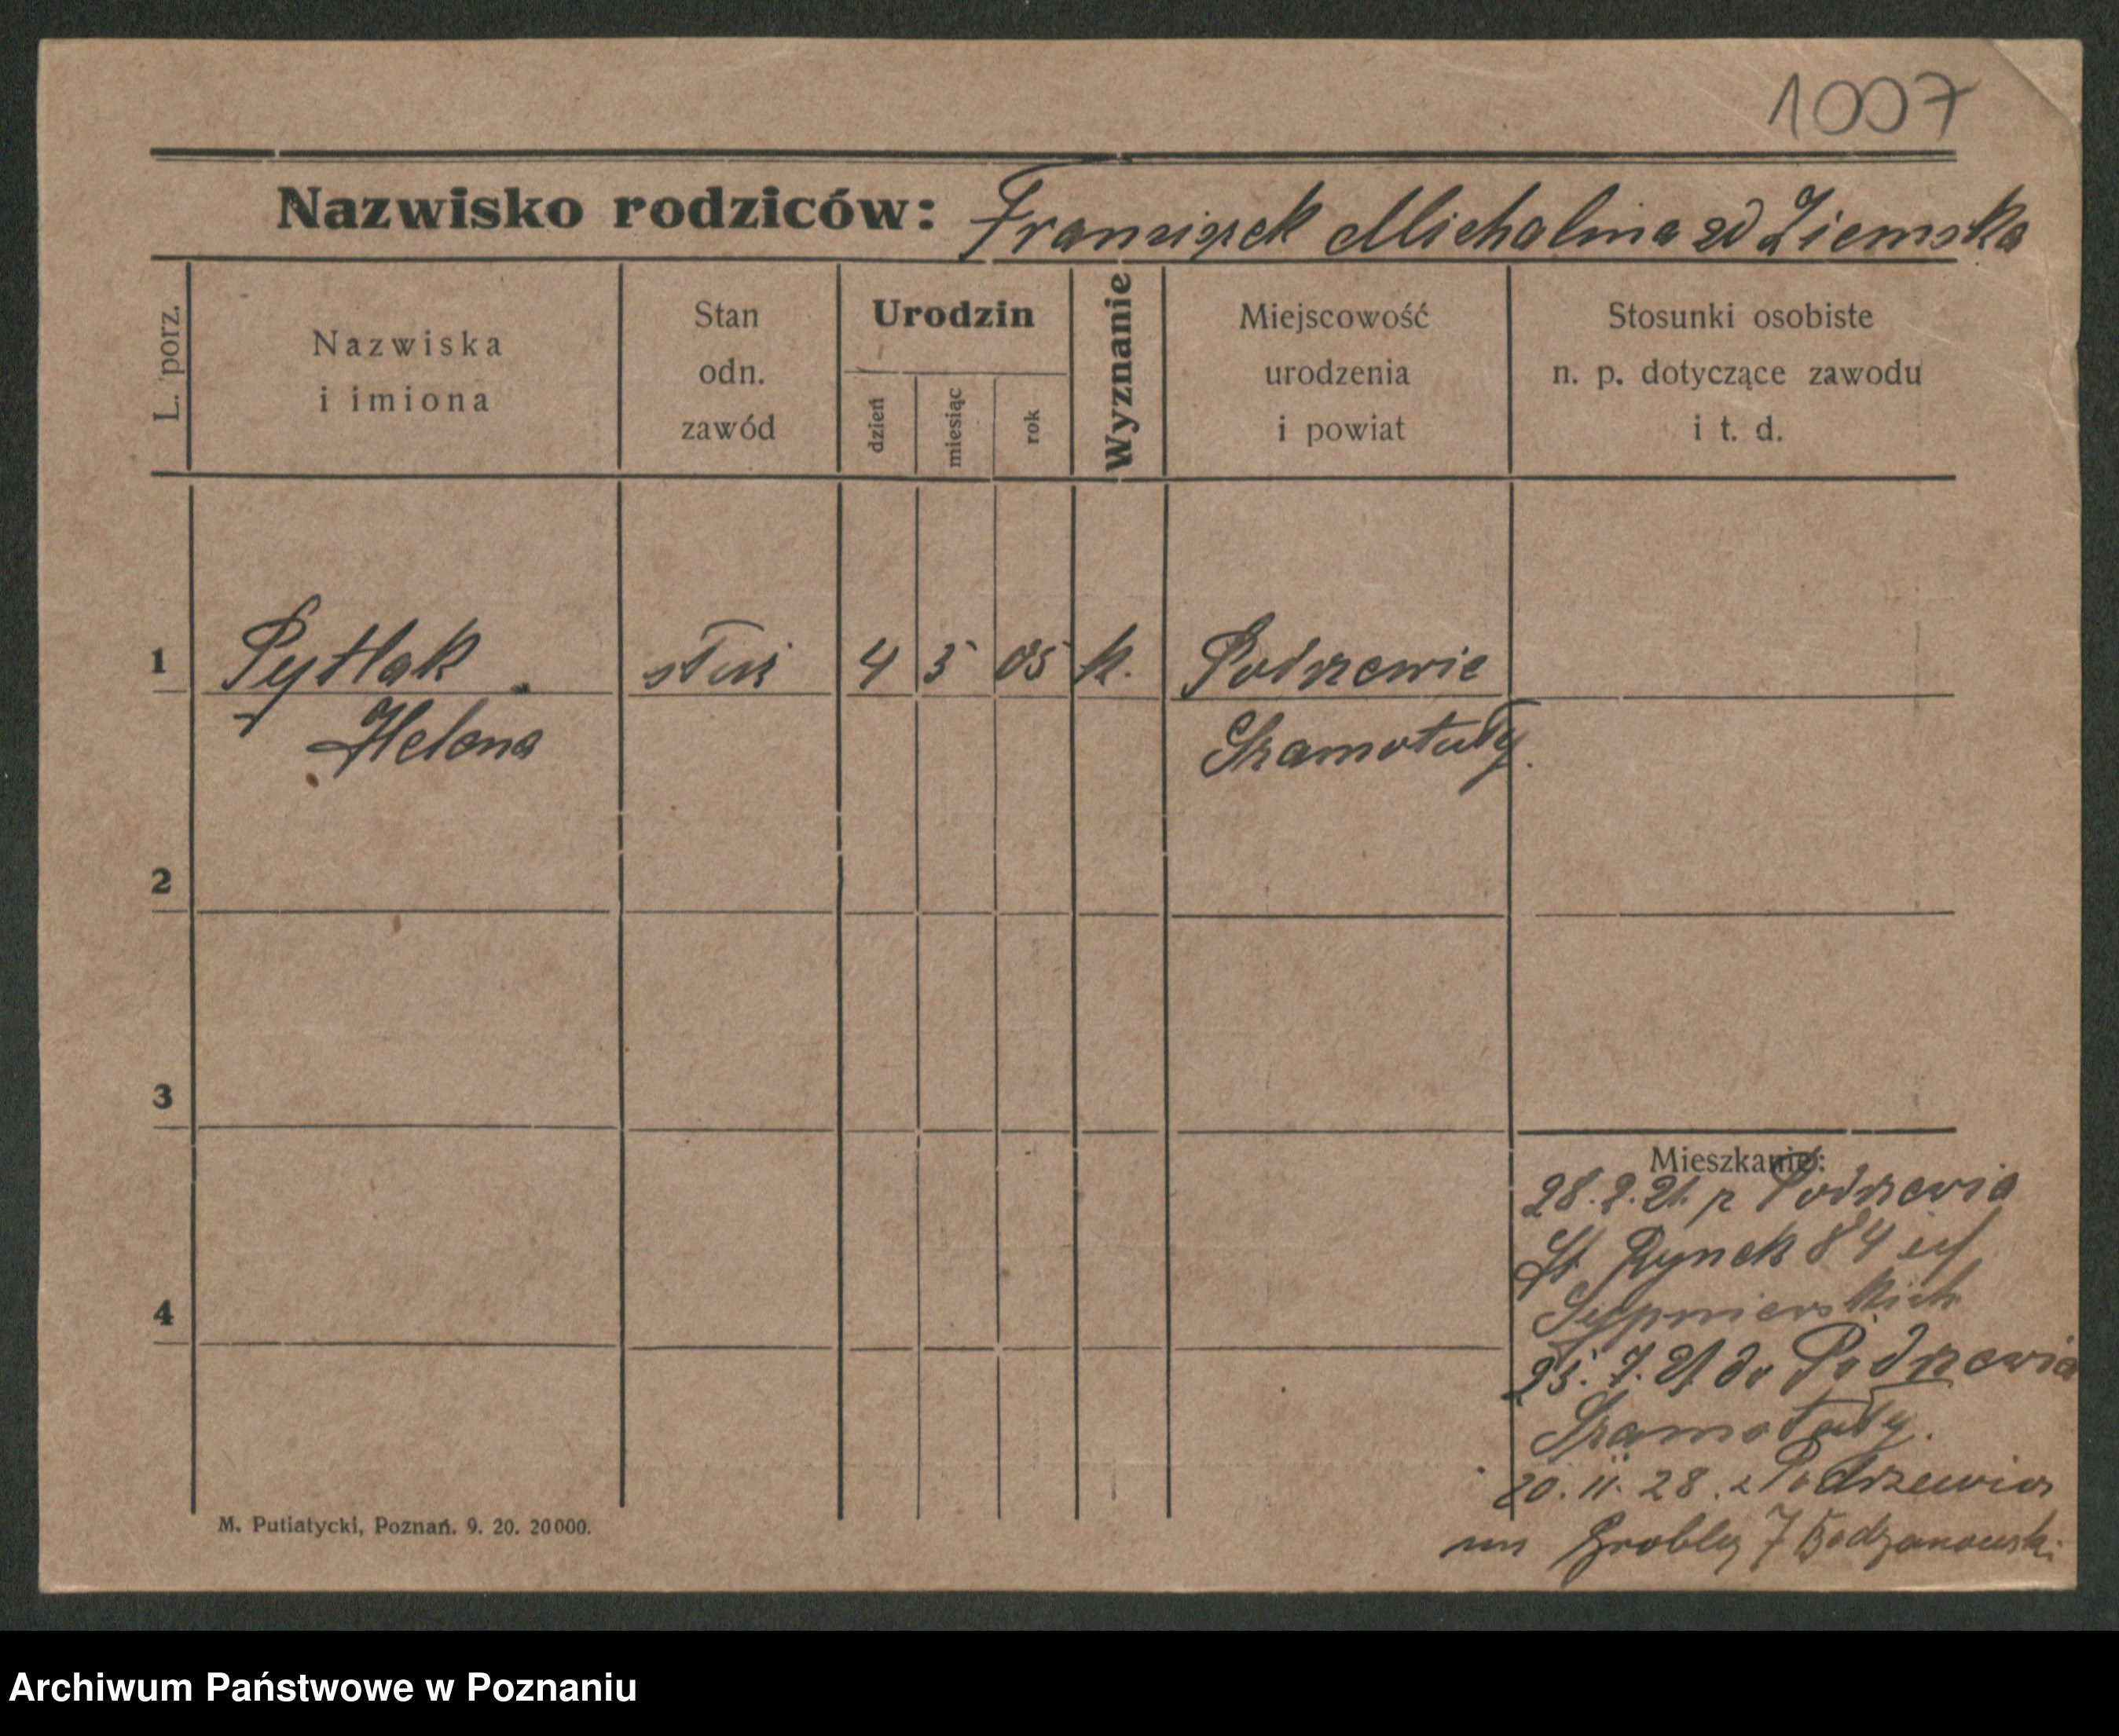 1007
Nazwisko rodziców: Franciszek Michalina zd Ziemska
L. porz.
Nazwiska
i imiona
Stan
odn.
zawód
Urodzin
dzień
miesiąc
rok
Wyznanie
Miejscowość
urodzenia
i powiat
Stosunki osobiste
n. p. dotyczące zawodu
i t. d.
1 Pytlak 4 5 05 k. Podrzewie
Helena Szamotuły.
2
3
Mieszkanie:
28. 2. 21. z Podrzewia
St. Rynek 84
4
25. 7. 21 do Podrzewia
Szamotuły.
20. 11. 28. z Podrzewia
na Grobla 7 Bodzanowski
M. Putiatycki, Poznań. 9. 20. 20000.
Archiwum Państwowe w Poznaniu